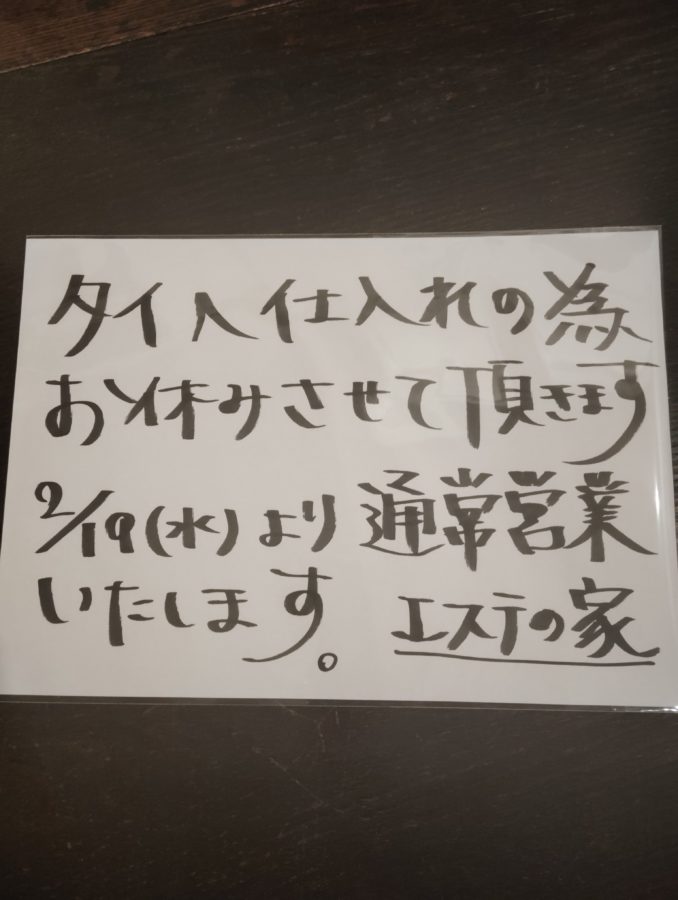 タイへ仕入れの為
お休みさせて頂きます
2/19(水)より通常営業
いたします。 エステの家